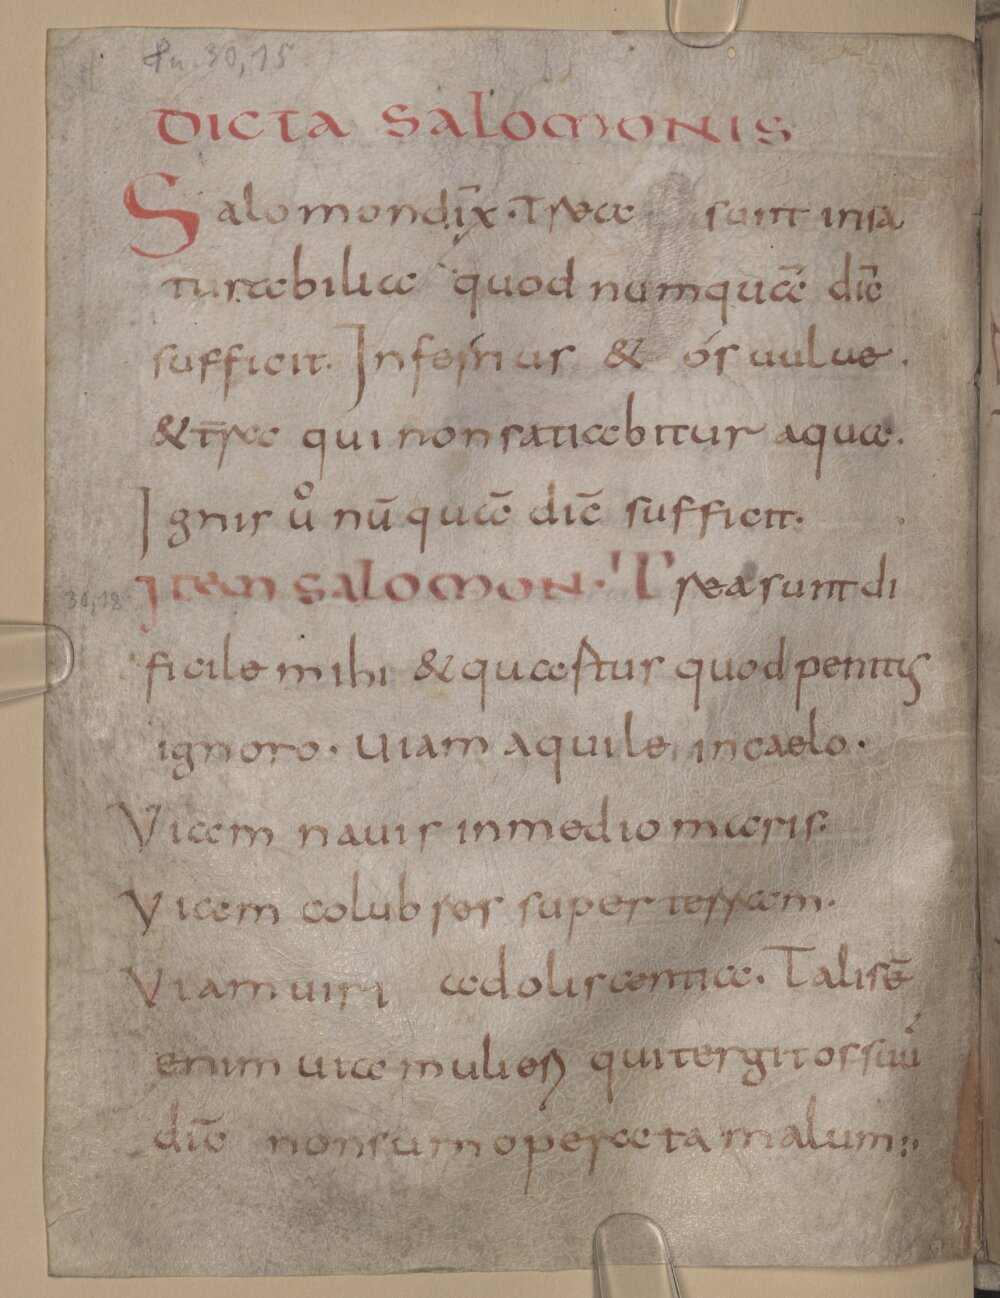 Pn. 30,15
DICTA SALOMONIS
Salomon dix̄. Trea sunt insa
turabilia quod numquā dic̄
sufficit. Infernus & ós uulue.
& t̄rae qui non satiabitur aqua.
Ignis ů nū quā dic̄ sufficit.
ITEM SALOMON. Trea sunt di
30,18
ficile mihi & quartus quod penitus
ignoro. Uiam aquile in caelo.
Viam nauis in medio maris.
Viam colubres super terram.
Viam uiri adoliscentiae. Talis ē
enim uia mulieris qui tergit os suū
dic̄ non sum operata malum:,